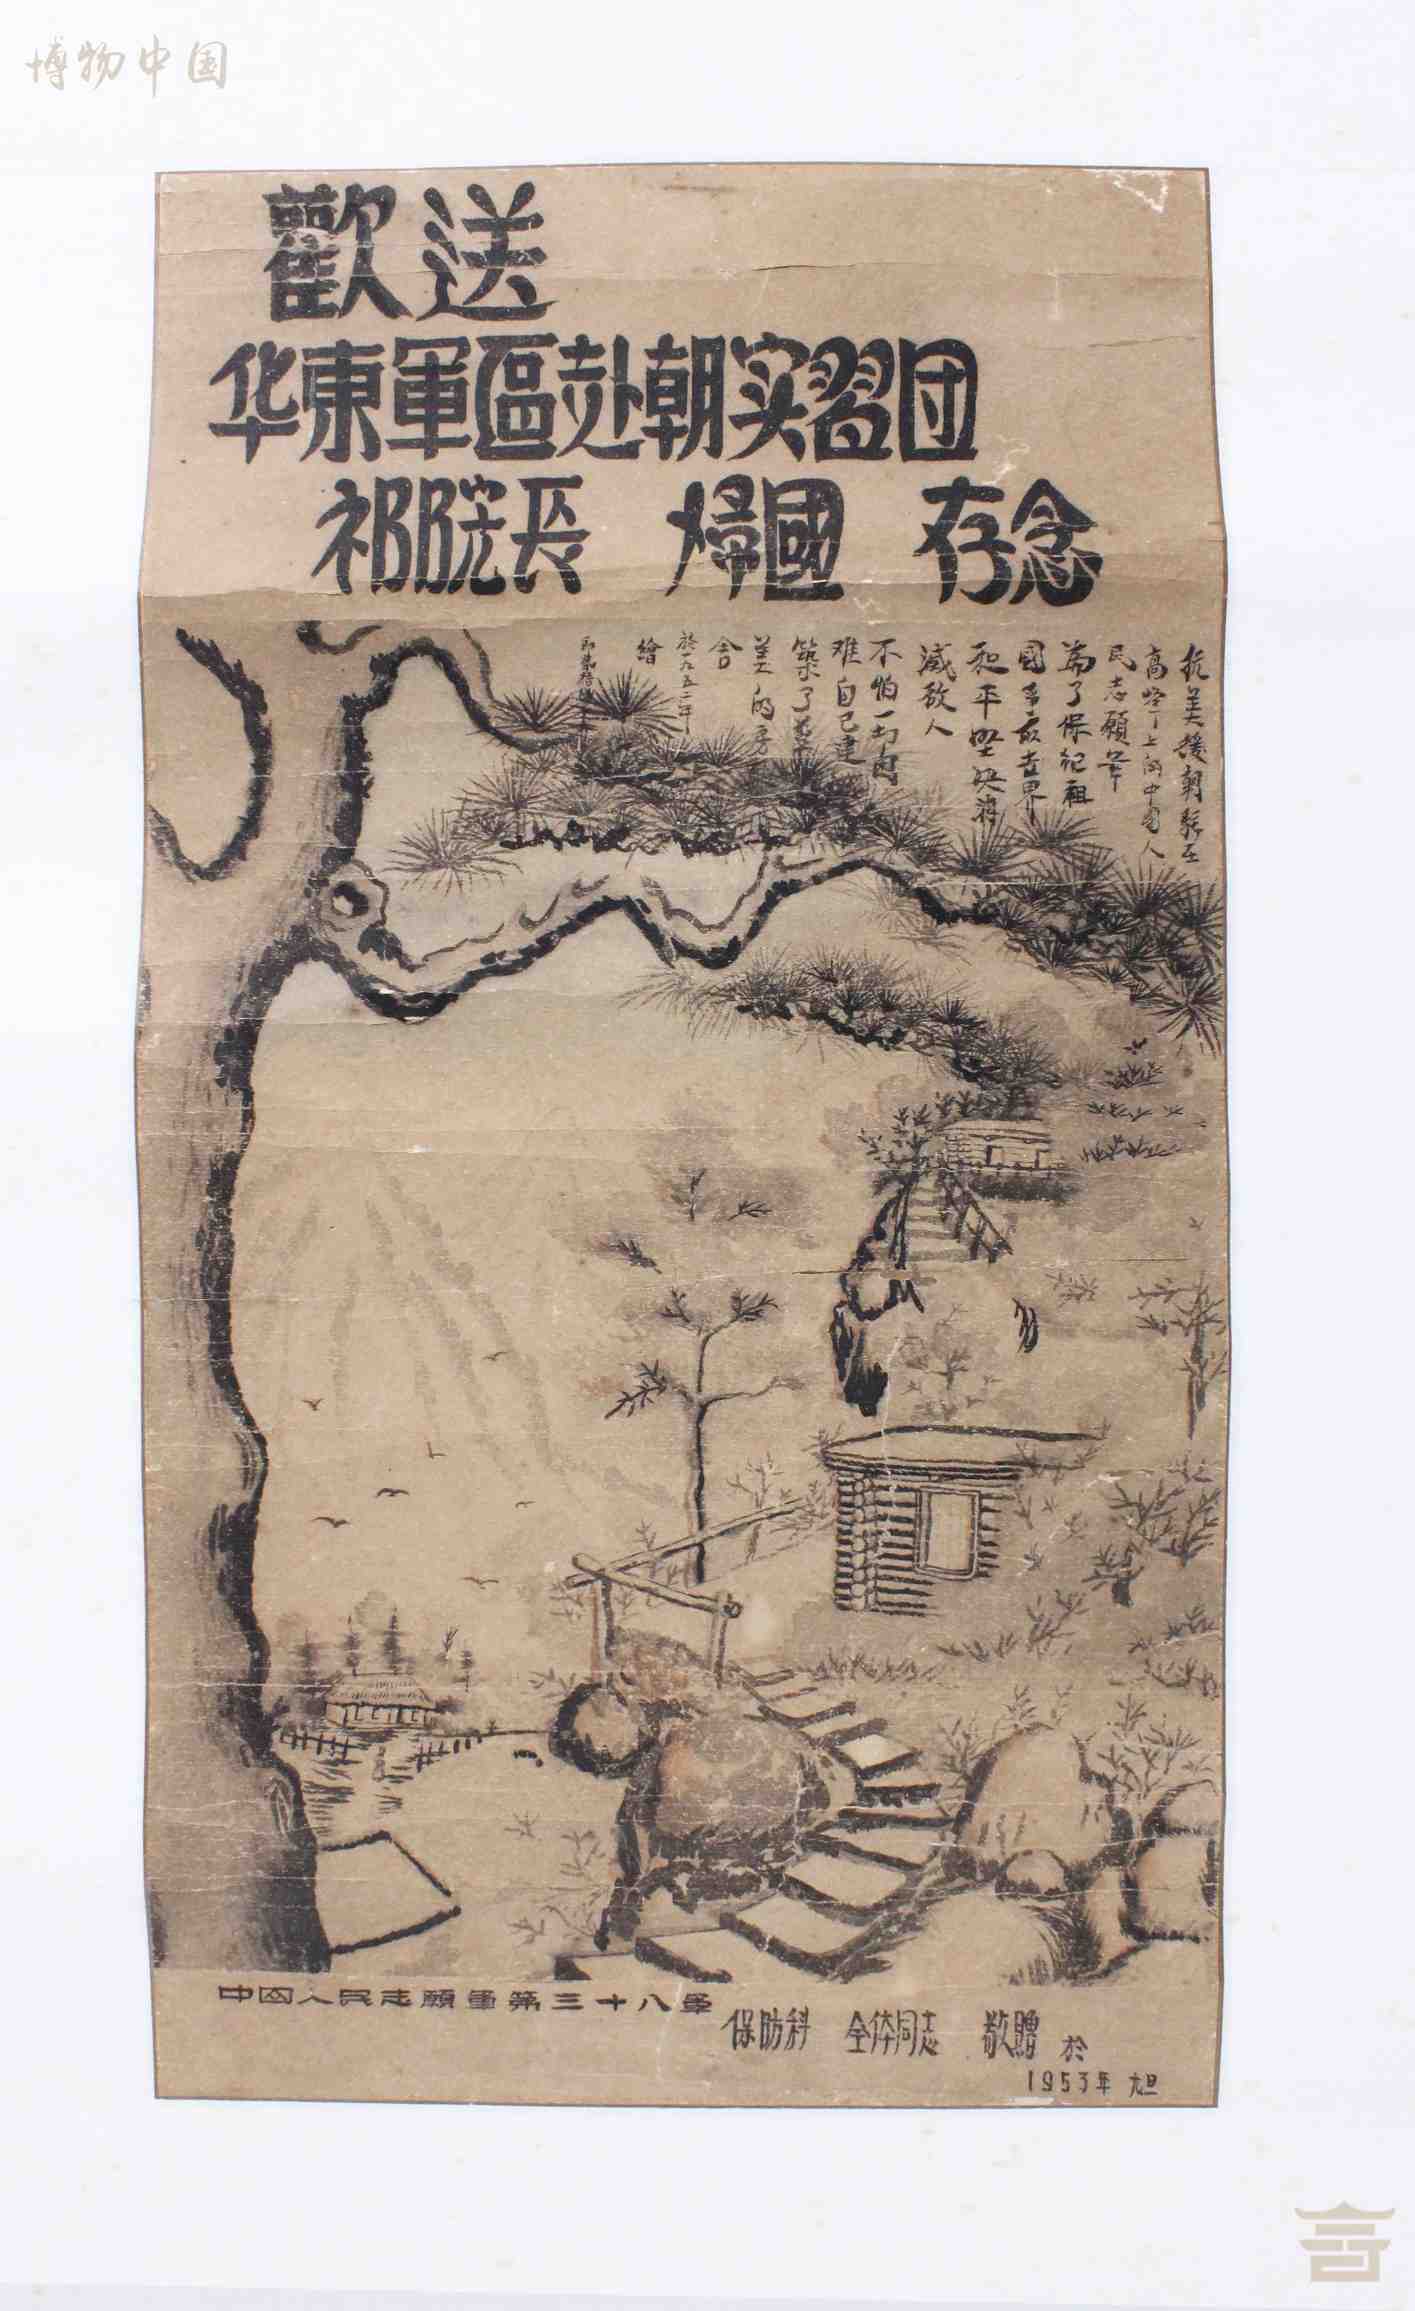 博物中国
歡送
华東軍區赴朝实習団
祁院長 㷌國 存念
抗美援朝
高 上的中国人
民志願軍
為了保 祖
國 世界
和平坚决将
滅敌人
不怕一切困
难自己建
築了
美的房
舍
於一九五二年
繪
中国人民志願軍第三十八軍
保防科 全体同志 敬贈 於
1953年 元旦